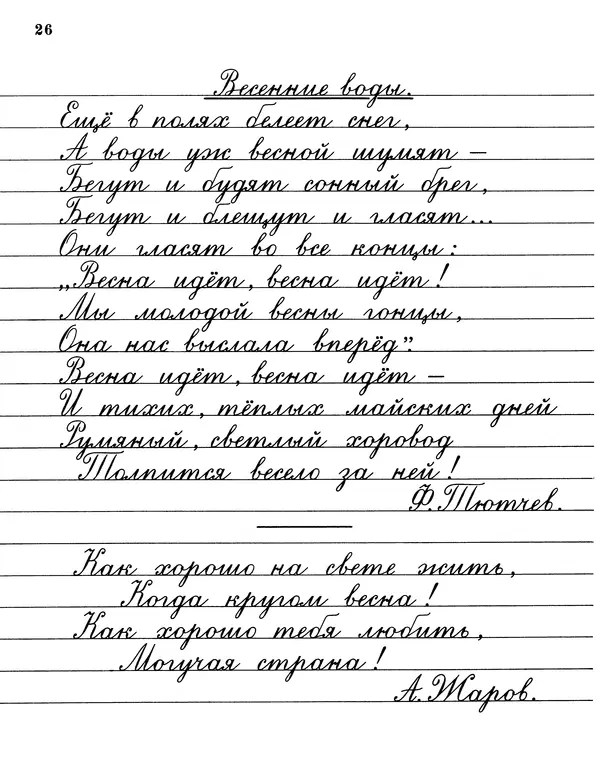 26
Весенние воды.
Ещё в полях белеет снег,
А воды уж весной шумят —
Бегут и будят сонный брег,
Бегут и блещут и гласят...
Они гласят во все концы:
„Весна идёт, весна идёт!
Мы молодой весны гонцы,
Она нас выслала вперёд”.
Весна идёт, весна идёт —
И тихих, тёплых майских дней
Румяный, светлый хоровод
Толпится весело за ней!
Ф. Тютчев.
Как хорошо на свете жить,
Когда кругом весна!
Как хорошо тебя любить,
Могучая страна!
А. Жаров.